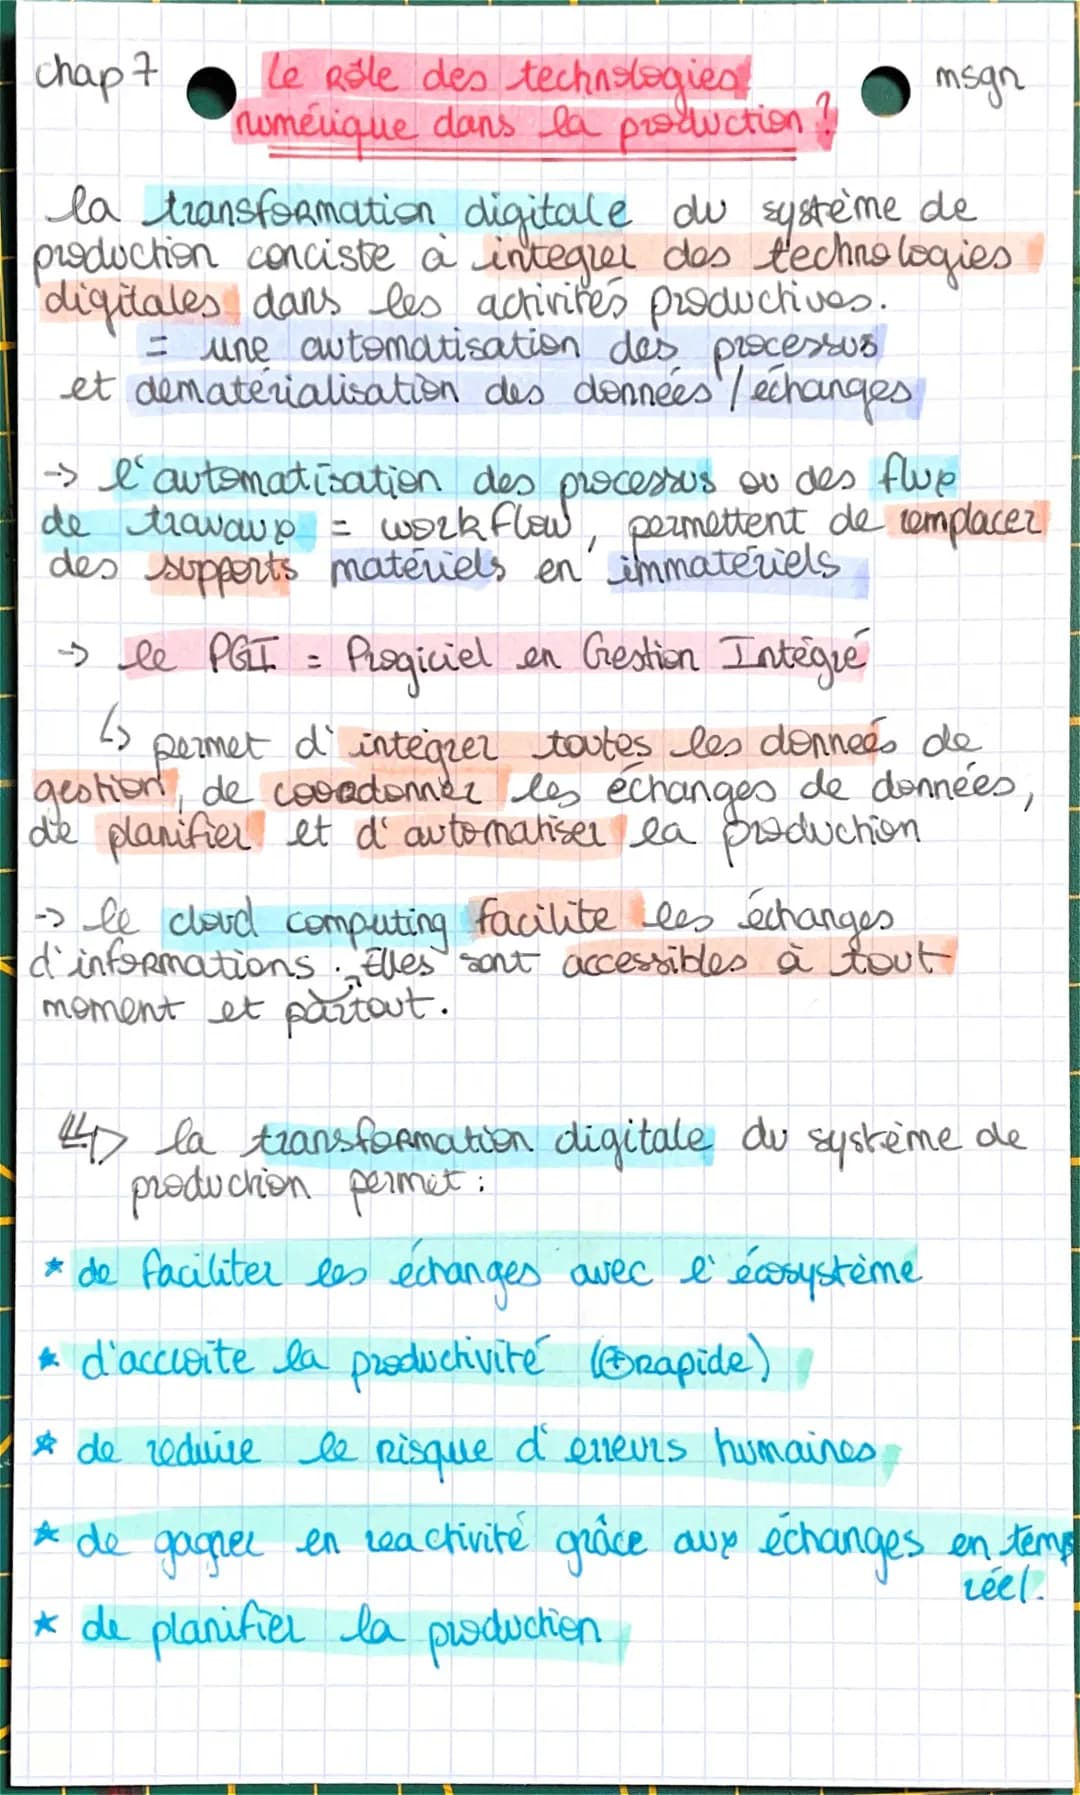 chap 7
Le Rôle des technologies
numérique dans la production ?
msgn
la transformation digitale du système de
production conciste à integrer des technologies
digitales dans les activités productives.
= une automatisation des processus
et dematérialisation des données / échanges
-> l'automatisation des processus ou des flux
de travaux = workflow, permettent de remplacer
des supports matériels en immatériels
-> le PGI = Progiciel en Gestion Intégré
↳ permet d'intégrer toutes les données de
gestion, de cooadonner les échanges de données,
de planifier et d'automatiser la production
-> le cloud computing facilite les échanges
d'informations. Elles sont accessibles à tout
moment et partout.
la transformation digitale du système de
production permet :
* de faciliter les échanges avec l'écosystème
* d'accroite la productivité (⊕ rapide)
* de reduire le risque d'erreurs humaines
* de gagner en reactivité grâce aux échanges en temps
réel.
* de planifier la production